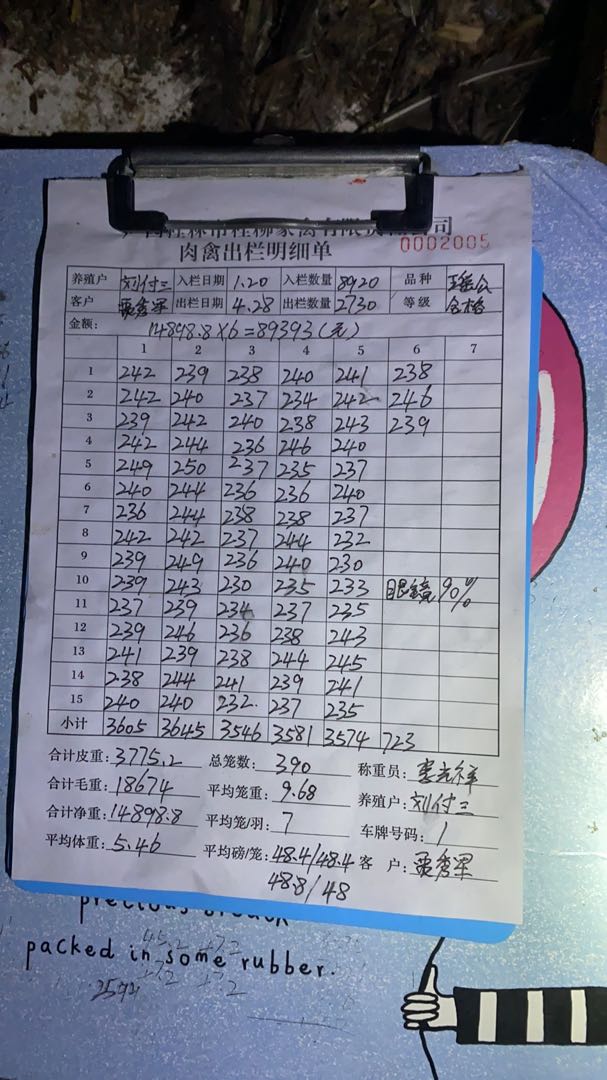 桂林市桂柳家禽有限责任公司
肉禽出栏明细单 0002005
养殖户 刘付三 入栏日期 1.20 入栏数量 8920 品种 瑶
客户 粟秀军 出栏日期 4.28 出栏数量 2730 等级 合格
金额: 14898.8×6=89393(元)
1 2 3 4 5 6 7
1 242 239 238 240 241 238
2 242 240 237 234 242 246
3 239 242 240 238 243 239
4 242 244 236 246 240
5 249 250 237 235 237
6 240 244 236 236 240
7 236 244 238 238 237
8 242 242 237 244 232
9 239 249 236 240 230
10 239 243 230 235 233 眼镜 90%
11 237 239 234 237 235
12 239 246 236 238 243
13 241 239 238 244 245
14 238 244 241 239 241
15 240 240 232. 237 235
小计 3605 3645 3546 3581 3574 723
合计皮重: 3775.2 总笼数: 390 称重员: 李光祥
合计毛重: 18674 平均笼重: 9.68 养殖户: 刘付三
合计净重: 14898.8 平均笼/羽: 7 车牌号码: 1
平均体重: 5.46 平均磅/笼: 48.4/48.4 客 户: 粟秀军
48.8/48
precious
packed in some rubber.